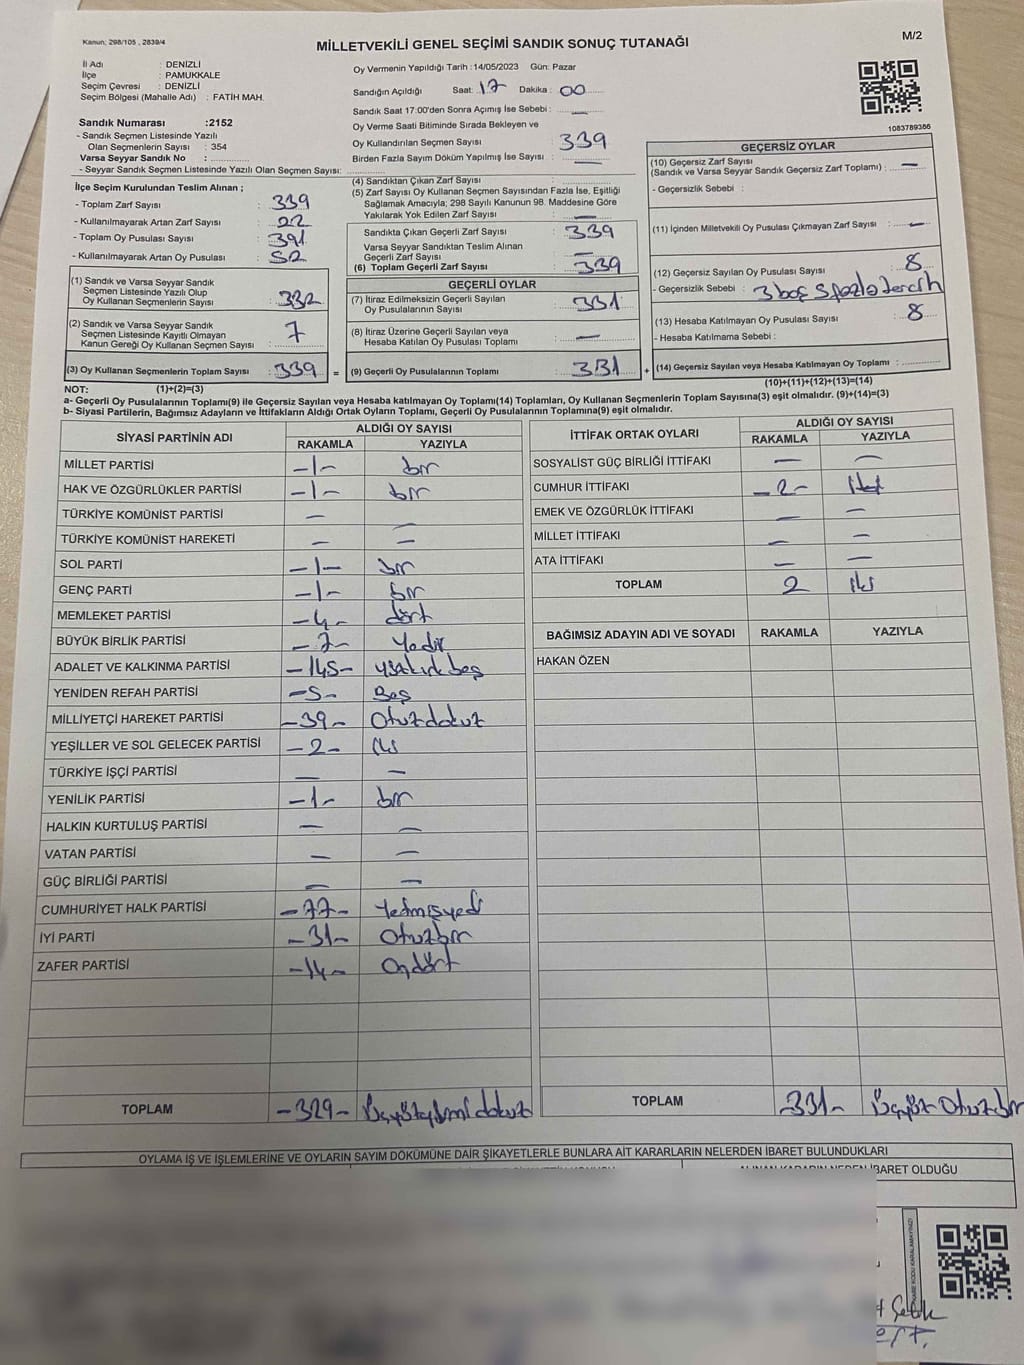 Kanun; 298/105 , 2839/4
M/2
MİLLETVEKİLİ GENEL SEÇİMİ SANDIK SONUÇ TUTANAĞI
İl Adı : DENİZLİ
İlçe : PAMUKKALE
Seçim Çevresi : DENİZLİ
Seçim Bölgesi (Mahalle Adı) : FATİH MAH.
Sandık Numarası :2152
- Sandık Seçmen Listesinde Yazılı
Olan Seçmenlerin Sayısı : 354
Varsa Seyyar Sandık No :
- Seyyar Sandık Seçmen Listesinde Yazılı Olan Seçmen Sayısı:
İlçe Seçim Kurulundan Teslim Alınan ;
- Toplam Zarf Sayısı : 339
- Kullanılmayarak Artan Zarf Sayısı : 22
- Toplam Oy Pusulası Sayısı : 391
- Kullanılmayarak Artan Oy Pusulası : 52
(1) Sandık ve Varsa Seyyar Sandık
Seçmen Listesinde Yazılı Olup
Oy Kullanan Seçmenlerin Sayısı : 332
(2) Sandık ve Varsa Seyyar Sandık
Seçmen Listesinde Kayıtlı Olmayan
Kanun Gereği Oy Kullanan Seçmen Sayısı : 7
(3) Oy Kullanan Seçmenlerin Toplam Sayısı : 339 =
Oy Vermenin Yapıldığı Tarih :14/05/2023 Gün: Pazar
Sandığın Açıldığı Saat: 17 Dakika : 00
Sandık Saat 17:00'den Sonra Açımış İse Sebebi : —
Oy Verme Saati Bitiminde Sırada Bekleyen ve
Oy Kullandırılan Seçmen Sayısı : 339
Birden Fazla Sayım Döküm Yapılmış İse Sayısı : —
(4) Sandıktan Çıkan Zarf Sayısı :
(5) Zarf Sayısı Oy Kullanan Seçmen Sayısından Fazla İse, Eşitliği
Sağlamak Amacıyla; 298 Sayılı Kanunun 98. Maddesine Göre
Yakılarak Yok Edilen Zarf Sayısı : —
Sandıkta Çıkan Geçerli Zarf Sayısı : 339
Varsa Seyyar Sandıktan Teslim Alınan
Geçerli Zarf Sayısı : —
(6) Toplam Geçerli Zarf Sayısı : 339
GEÇERLİ OYLAR
(7) İtiraz Edilmeksizin Geçerli Sayılan
Oy Pusulalarının Sayısı : 331
(8) İtiraz Üzerine Geçerli Sayılan veya
Hesaba Katılan Oy Pusulası Toplamı : —
(9) Geçerli Oy Pusulalarının Toplamı : 331 +
1083789366
GEÇERSİZ OYLAR
(10) Geçersiz Zarf Sayısı
(Sandık ve Varsa Seyyar Sandık Geçersiz Zarf Toplamı) : —
- Geçersizlik Sebebi :
(11) İçinden Milletvekili Oy Pusulası Çıkmayan Zarf Sayısı : —
(12) Geçersiz Sayılan Oy Pusulası Sayısı : 8
- Geçersizlik Sebebi : 3 boş 5 fazla tercih
(13) Hesaba Katılmayan Oy Pusulası Sayısı : 8
- Hesaba Katılmama Sebebi :
(14) Geçersiz Sayılan veya Hesaba Katılmayan Oy Toplamı :
NOT: (1)+(2)=(3) (10)+(11)+(12)+(13)=(14)
a- Geçerli Oy Pusulalarının Toplamı(9) ile Geçersiz Sayılan veya Hesaba katılmayan Oy Toplamı(14) Toplamları, Oy Kullanan Seçmenlerin Toplam Sayısına(3) eşit olmalıdır. (9)+(14)=(3)
b- Siyasi Partilerin, Bağımsız Adayların ve İttifakların Aldığı Ortak Oyların Toplamı, Geçerli Oy Pusulalarının Toplamına(9) eşit olmalıdır.
SİYASİ PARTİNİN ADI ALDIĞI OY SAYISI
RAKAMLA YAZIYLA
MİLLET PARTİSİ -1- bir
HAK VE ÖZGÜRLÜKLER PARTİSİ -1- bir
TÜRKİYE KOMÜNİST PARTİSİ — —
TÜRKİYE KOMÜNİST HAREKETİ — —
SOL PARTİ -1- bir
GENÇ PARTİ -1- bir
MEMLEKET PARTİSİ -4- dört
BÜYÜK BİRLİK PARTİSİ -7- Yedi
ADALET VE KALKINMA PARTİSİ -145- yüzkırkbeş
YENİDEN REFAH PARTİSİ -5- Beş
MİLLİYETÇİ HAREKET PARTİSİ -39- Otuzdokuz
YEŞİLLER VE SOL GELECEK PARTİSİ -2- iki
TÜRKİYE İŞÇİ PARTİSİ — —
YENİLİK PARTİSİ -1- bir
HALKIN KURTULUŞ PARTİSİ — —
VATAN PARTİSİ — —
GÜÇ BİRLİĞİ PARTİSİ — —
CUMHURİYET HALK PARTİSİ -77- Yetmişyedi
İYİ PARTİ -31- Otuzbir
ZAFER PARTİSİ -14- Ondört
TOPLAM -329- Üçyüzyirmidokuz
İTTİFAK ORTAK OYLARI ALDIĞI OY SAYISI
RAKAMLA YAZIYLA
SOSYALİST GÜÇ BİRLİĞİ İTTİFAKI — —
CUMHUR İTTİFAKI -2- iki
EMEK VE ÖZGÜRLÜK İTTİFAKI — —
MİLLET İTTİFAKI — —
ATA İTTİFAKI — —
TOPLAM 2 iki
BAĞIMSIZ ADAYIN ADI VE SOYADI RAKAMLA YAZIYLA
HAKAN ÖZEN
TOPLAM -331- Üçyüz Otuzbir
OYLAMA İŞ VE İŞLEMLERİNE VE OYLARIN SAYIM DÖKÜMÜNE DAİR ŞİKAYETLERLE BUNLARA AİT KARARLARIN NELERDEN İBARET BULUNDUKLARI
ALINAN KARARIN NEDEN İBARET OLDUĞU